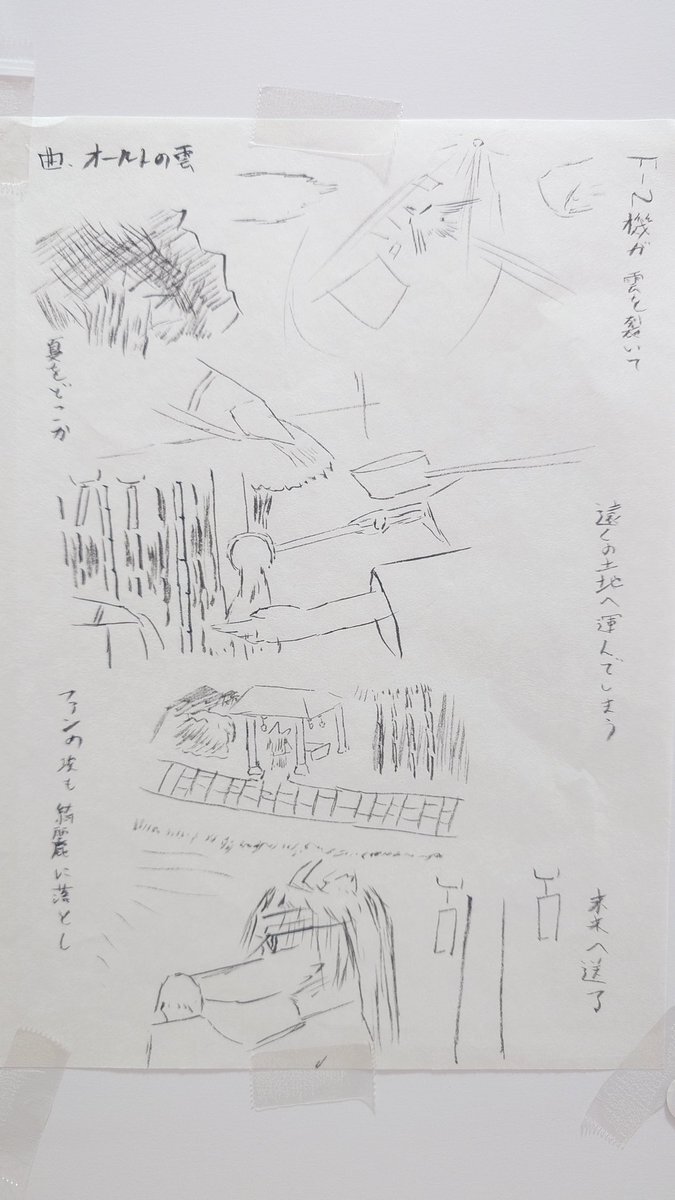 曲、オールトの雲
F-2機が 雲を裂いて
夏をどこか
遠くの土地へ運んでしまう
ファンの も 綺麗に落とし
未来へ送る